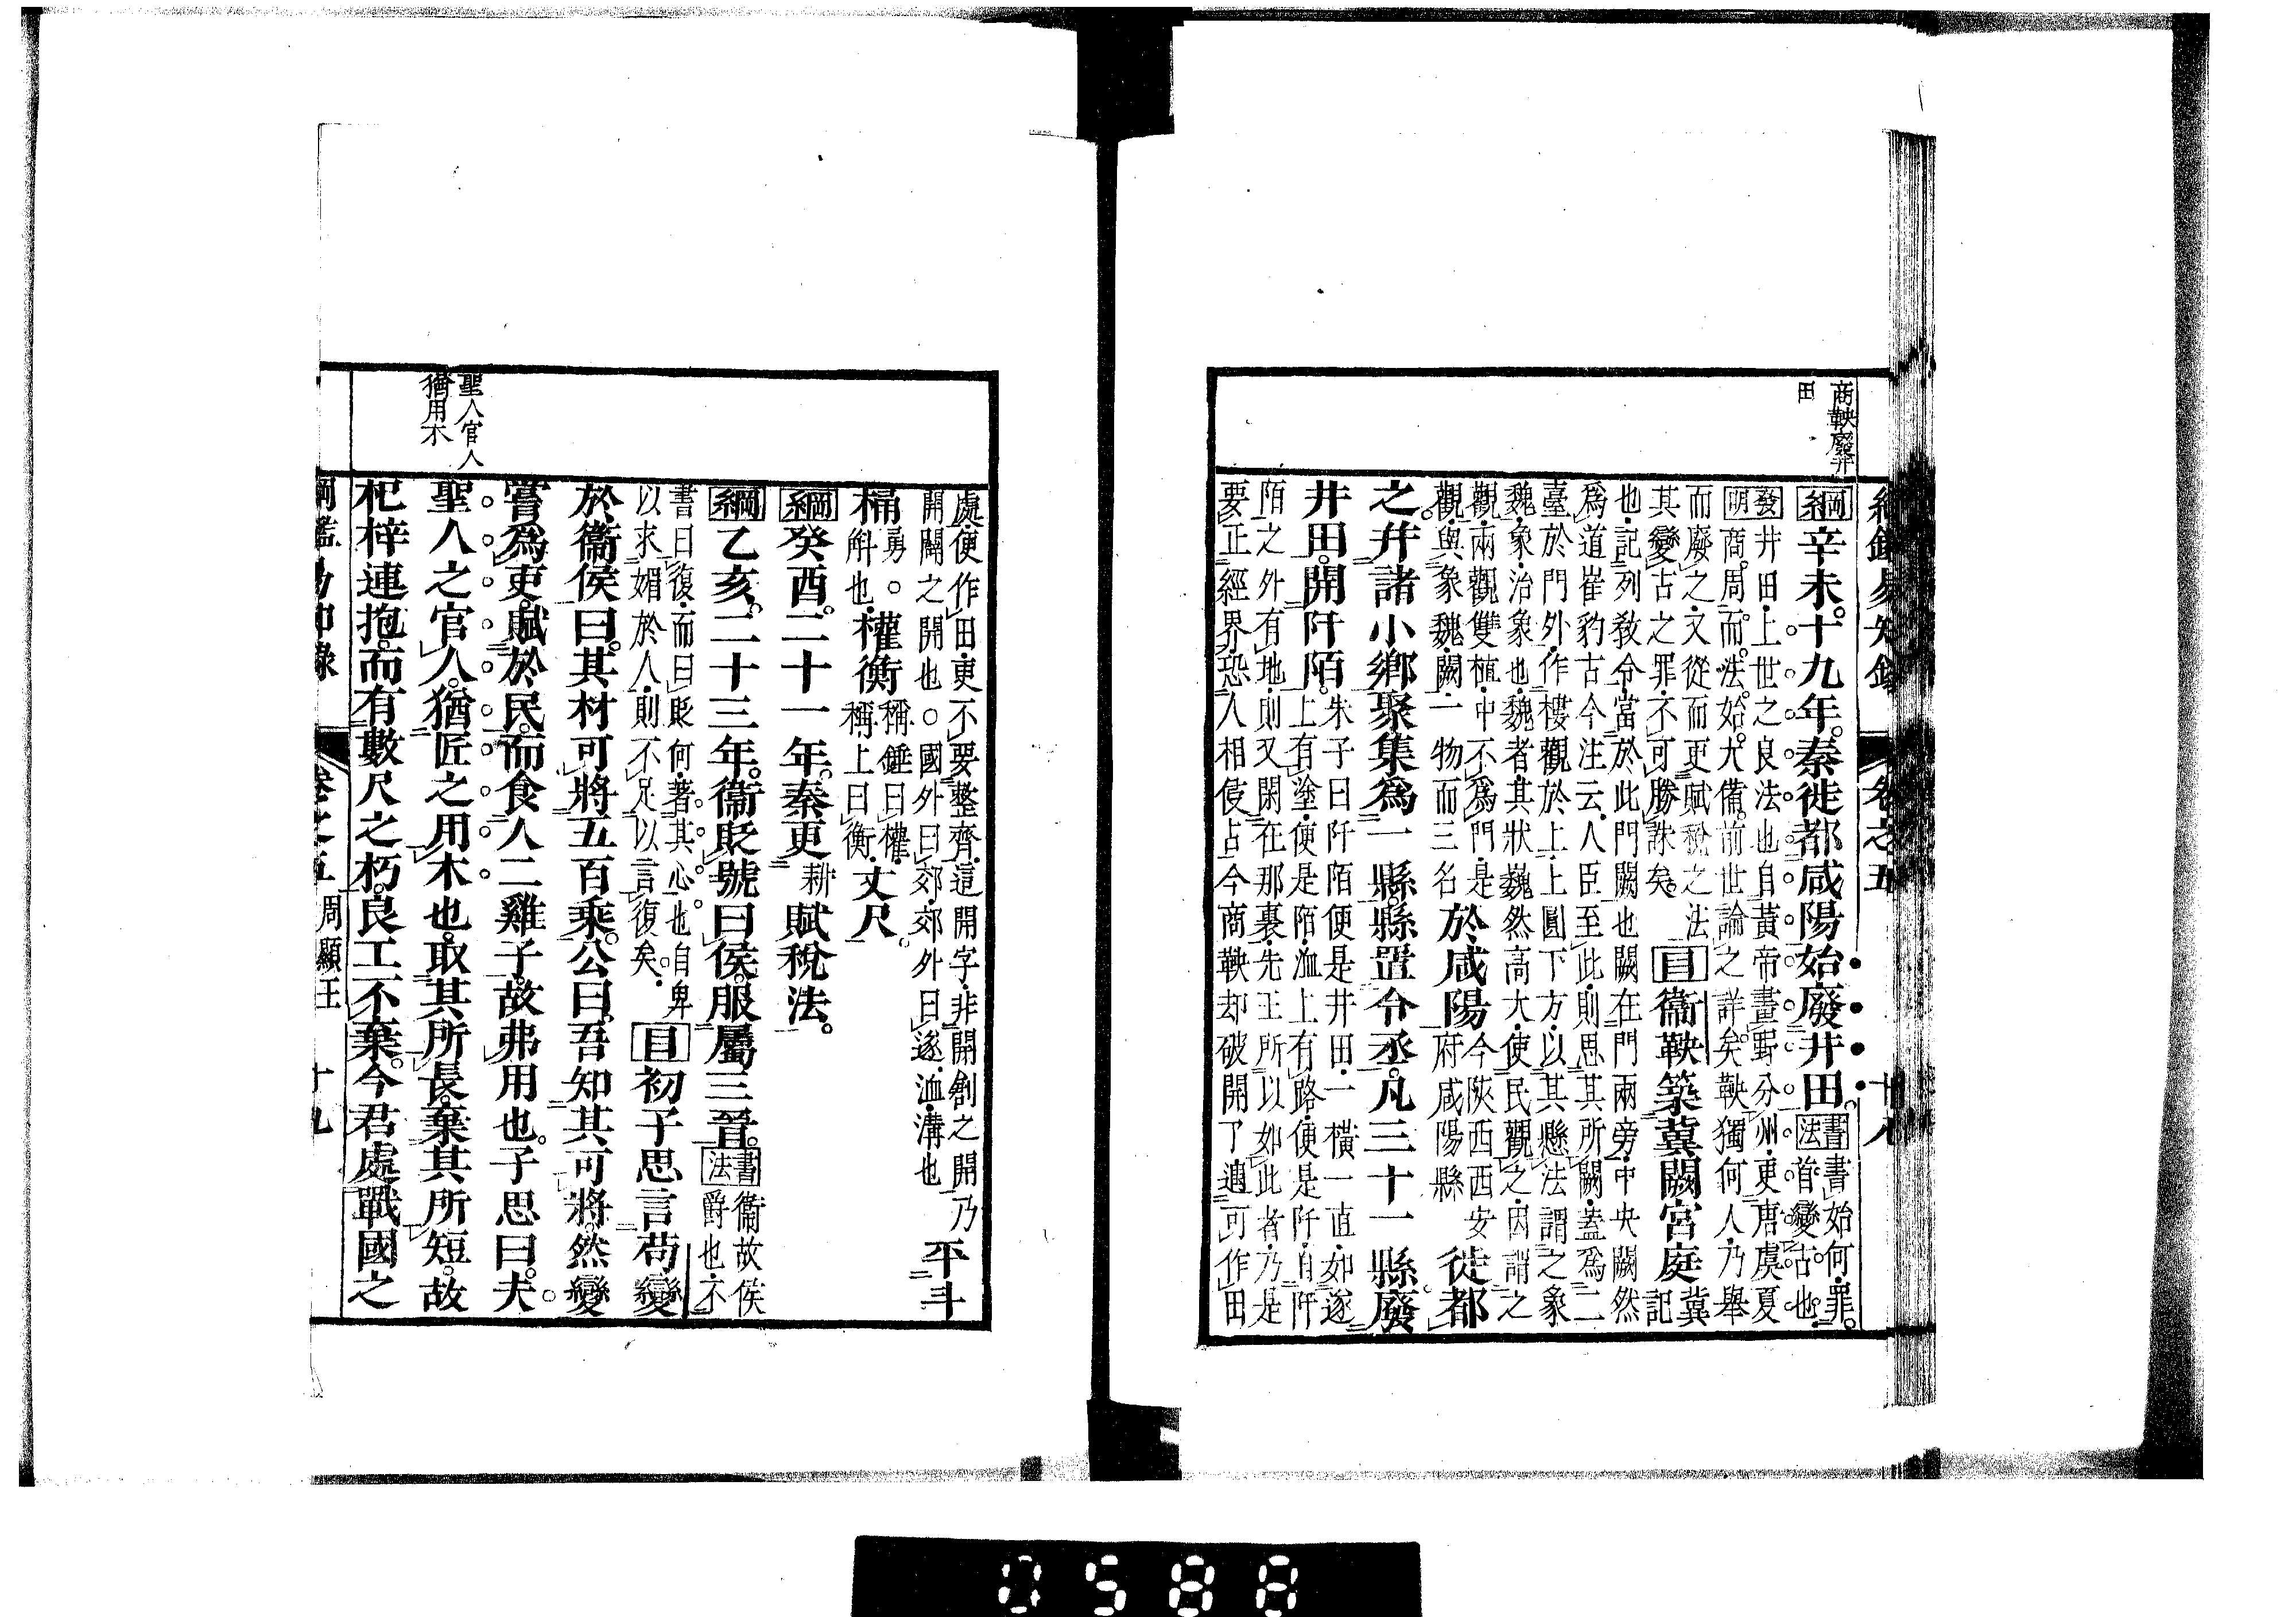 綱鑑易知錄 卷之五 十八
商鞅廢井
田
綱辛未。十九年。秦徙都咸陽始廢井田。書法書始何。罪
首變古也。
發明井田上世之良法也自黃帝畫野分州更唐虞夏
商。周。而。法。始。大。備。前世論之詳矣鞅獨何人乃舉
而廢之又從而更賦稅之法
其變古之罪不可勝誅矣。目衞鞅築冀闕宮庭冀
記
也記列敎令當於此門闕也闕在門兩旁中央闕然
爲道崔豹古今注云人臣至此則思其所闕蓋爲二
臺於門外作樓觀於上上圓下方以其懸法謂之象
魏象治象也魏者其狀巍然高大使民觀之因謂之
觀兩觀雙植中不爲門是
觀與象魏闕一物而三名於咸陽今陝西西安
府咸陽縣徙都
之幷諸小鄉聚集爲一縣縣置令丞凡三十一縣廢
井田。開阡陌。朱子曰阡陌便是井田一橫一直如遂
上有塗便是陌洫上有路便是阡自阡
陌之外有地則又閑在那裏先王所以如此者乃是
要正經界恐人相侵占今商鞅却破開了遇可作田
處便作田更不要整齊這開字非開創之開乃
開闢之開也○國外曰郊郊外曰遂洫溝也平斗
桶勇。
斛也權衡稱錘曰權
稱上曰衡丈尺。
綱癸酉。二十一年。秦更耕賦稅法。
綱乙亥。二十三年。衞貶號曰侯。服屬三晉。書法衞故侯
爵也不
書曰復而曰貶何著其心也自卑
以求媚於人則不足以言復矣。目初子思言苟變
於衞侯曰。其材可將五百乘。公曰。吾知其可將。然變
嘗爲吏。賦於民。而食人二雞子。故弗用也。子思曰。夫
聖人之官人。猶匠之用木也。取其所長。棄其所短。故
杞梓連抱。而有數尺之朽。良工不棄。今君處戰國之
聖人官人
猶用木
綱鑑易知錄 卷之五 周顯王 十九
0588